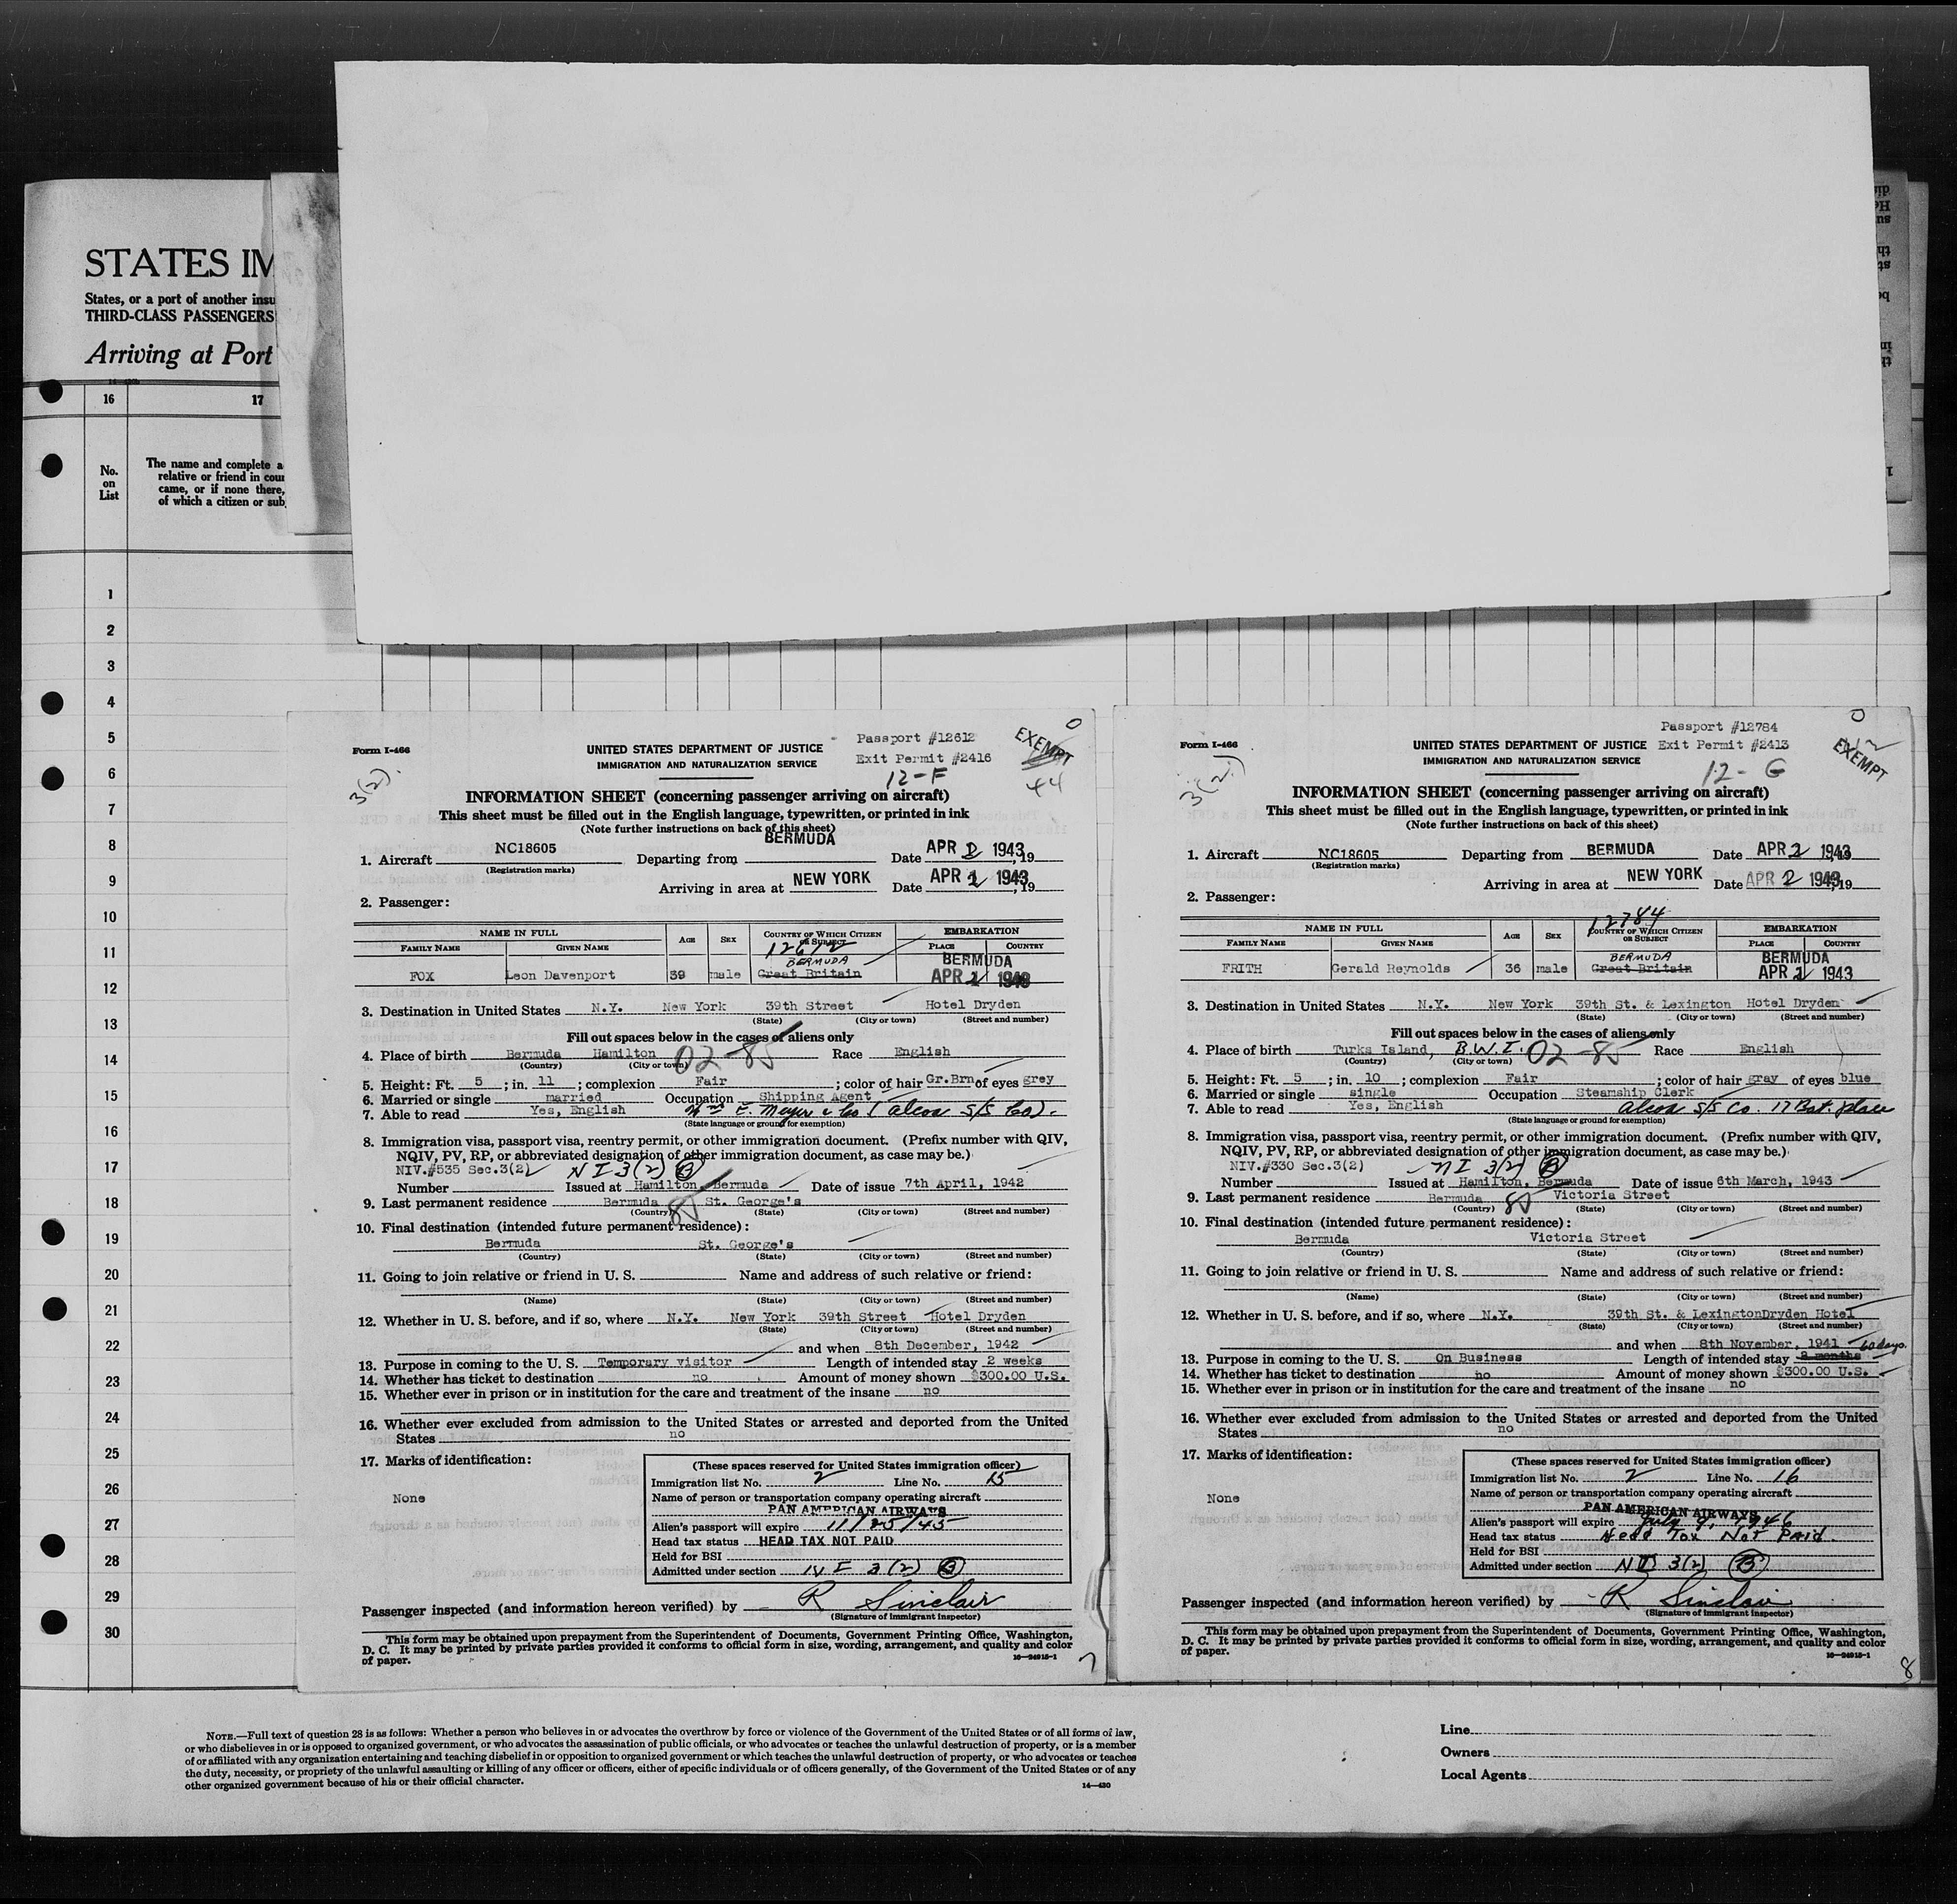 STATES IM
States, or a port of another insu
THIRD-CLASS PASSENGERS
Arriving at Port
16 17
No. on List
The name and complete a
relative or friend in cour
came, or if none there,
of which a citizen or sub
1
2
3
4
5
6
7
8
9
10
11
12
13
14
15
16
17
18
19
20
21
22
23
24
25
26
27
28
29
30
Passport #12612
Form I-466 UNITED STATES DEPARTMENT OF JUSTICE Exit Permit #2416 EXEMPT 0
IMMIGRATION AND NATURALIZATION SERVICE
3(2). 12-F 44
INFORMATION SHEET (concerning passenger arriving on aircraft)
This sheet must be filled out in the English language, typewritten, or printed in ink
(Note further instructions on back of this sheet)
1. Aircraft NC18605 Departing from BERMUDA Date APR 2 1943, 19
(Registration marks)
Arriving in area at NEW YORK Date APR 2 1943, 19
2. Passenger:
NAME IN FULL AGE SEX COUNTRY OF WHICH CITIZEN OR SUBJECT EMBARKATION
FAMILY NAME GIVEN NAME 12612 PLACE COUNTRY
BERMUDA BERMUDA
FOX Leon Davenport 39 male Great Britain APR 2 1943
3. Destination in United States N.Y. New York 39th Street Hotel Dryden
(State) (City or town) (Street and number)
Fill out spaces below in the cases of aliens only
4. Place of birth Bermuda Hamilton 02-85 Race English
(Country) (City or town)
5. Height: Ft. 5; in. 11; complexion Fair; color of hair Gr.Brn of eyes grey
6. Married or single married Occupation Shipping Agent
7. Able to read Yes, English Wm E. Meyer & Co (Alcoa S/S Co).
(State language or ground for exemption)
8. Immigration visa, passport visa, reentry permit, or other immigration document. (Prefix number with QIV,
NQIV, PV, RP, or abbreviated designation of other immigration document, as case may be.)
NIV.#535 Sec.3(2) N I 3(2) B
Number Issued at Hamilton, Bermuda Date of issue 7th April, 1942
9. Last permanent residence Bermuda 85 St. George's
(Country) (State) (City or town) (Street and number)
10. Final destination (intended future permanent residence):
Bermuda St. George's
(Country) (State) (City or town) (Street and number)
11. Going to join relative or friend in U. S. Name and address of such relative or friend:
(Name) (State) (City or town) (Street and number)
12. Whether in U. S. before, and if so, where N.Y. New York 39th Street Hotel Dryden
(State) (City or town) (Street and number)
and when 8th December, 1942
13. Purpose in coming to the U. S. Temporary visitor Length of intended stay 2 weeks
14. Whether has ticket to destination no Amount of money shown $300.00 U.S.
15. Whether ever in prison or in institution for the care and treatment of the insane no
16. Whether ever excluded from admission to the United States or arrested and deported from the United
States no
17. Marks of identification:
None
(These spaces reserved for United States immigration officer)
Immigration list No. 2 Line No. 15
Name of person or transportation company operating aircraft
PAN AMERICAN AIRWAYS
Alien's passport will expire 11/25/45
Head tax status HEAD TAX NOT PAID
Held for BSI
Admitted under section N I 3(2) B
Passenger inspected (and information hereon verified) by R Sinclair
(Signature of immigrant inspector)
This form may be obtained upon prepayment from the Superintendent of Documents, Government Printing Office, Washington,
D. C. It may be printed by private parties provided it conforms to official form in size, wording, arrangement, and quality and color
of paper. 16—24915-1
7
Passport #12784
Form I-466 UNITED STATES DEPARTMENT OF JUSTICE Exit Permit #2413 EXEMPT 0
IMMIGRATION AND NATURALIZATION SERVICE
3(2.) 12-G
INFORMATION SHEET (concerning passenger arriving on aircraft)
This sheet must be filled out in the English language, typewritten, or printed in ink
(Note further instructions on back of this sheet)
1. Aircraft NC18605 Departing from BERMUDA Date APR 2 1943, 19
(Registration marks)
Arriving in area at NEW YORK Date APR 2 1943, 19
2. Passenger:
12784
NAME IN FULL AGE SEX COUNTRY OF WHICH CITIZEN OR SUBJECT EMBARKATION
FAMILY NAME GIVEN NAME PLACE COUNTRY
BERMUDA BERMUDA
FRITH Gerald Reynolds 36 male Great Britain APR 2 1943
3. Destination in United States N.Y. New York 39th St. & Lexington Hotel Dryden
(State) (City or town) (Street and number)
Fill out spaces below in the cases of aliens only
4. Place of birth Turks Island, B.W.I. 02-85 Race English
(Country) (City or town)
5. Height: Ft. 5; in. 10; complexion Fair; color of hair gray of eyes blue
6. Married or single single Occupation Steamship Clerk
7. Able to read Yes, English Alcoa S/S Co. 17 Bat. place
(State language or ground for exemption)
8. Immigration visa, passport visa, reentry permit, or other immigration document. (Prefix number with QIV,
NQIV, PV, RP, or abbreviated designation of other immigration document, as case may be.)
NIV.#330 Sec.3(2) N I 3(2) B
Number Issued at Hamilton, Bermuda Date of issue 6th March, 1943
9. Last permanent residence Bermuda 85 Victoria Street
(Country) (State) (City or town) (Street and number)
10. Final destination (intended future permanent residence):
Bermuda Victoria Street
(Country) (State) (City or town) (Street and number)
11. Going to join relative or friend in U. S. Name and address of such relative or friend:
(Name) (State) (City or town) (Street and number)
12. Whether in U. S. before, and if so, where N.Y. 39th St. & Lexington Dryden Hotel
(State) (City or town) (Street and number)
and when 8th November, 1941 60 days.
13. Purpose in coming to the U. S. On Business Length of intended stay 2 months
14. Whether has ticket to destination no Amount of money shown $300.00 U.S.
15. Whether ever in prison or in institution for the care and treatment of the insane no
16. Whether ever excluded from admission to the United States or arrested and deported from the United
States no
17. Marks of identification:
None
(These spaces reserved for United States immigration officer)
Immigration list No. 2 Line No. 16
Name of person or transportation company operating aircraft
PAN AMERICAN AIRWAYS
Alien's passport will expire July 9, 1946
Head tax status Head Tax Not Paid.
Held for BSI
Admitted under section N I 3(2) B
Passenger inspected (and information hereon verified) by R Sinclair
(Signature of immigrant inspector)
This form may be obtained upon prepayment from the Superintendent of Documents, Government Printing Office, Washington,
D. C. It may be printed by private parties provided it conforms to official form in size, wording, arrangement, and quality and color
of paper. 16—24915-1
8
NOTE.—Full text of question 28 is as follows: Whether a person who believes in or advocates the overthrow by force or violence of the Government of the United States or of all forms of law,
or who disbelieves in or is opposed to organized government, or who advocates the assassination of public officials, or who advocates or teaches the unlawful destruction of property, or is a member
of or affiliated with any organization entertaining and teaching disbelief in or opposition to organized government or which teaches the unlawful destruction of property, or who advocates or teaches
the duty, necessity, or propriety of the unlawful assaulting or killing of any officer or officers, either of specific individuals or of officers generally, of the Government of the United States or of any
other organized government because of his or their official character. 14—430
Line
Owners
Local Agents